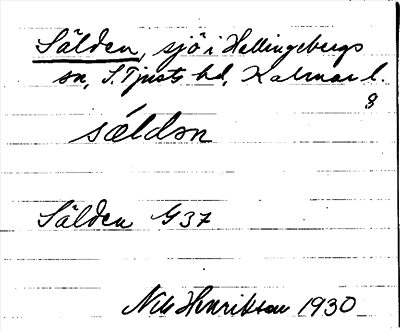 Sälden, sjö i Hallingebergs
sn, S. Tjusts hd, Kalmar l.
8
sældən
Sälden G 37
Nils Henrikson 1930